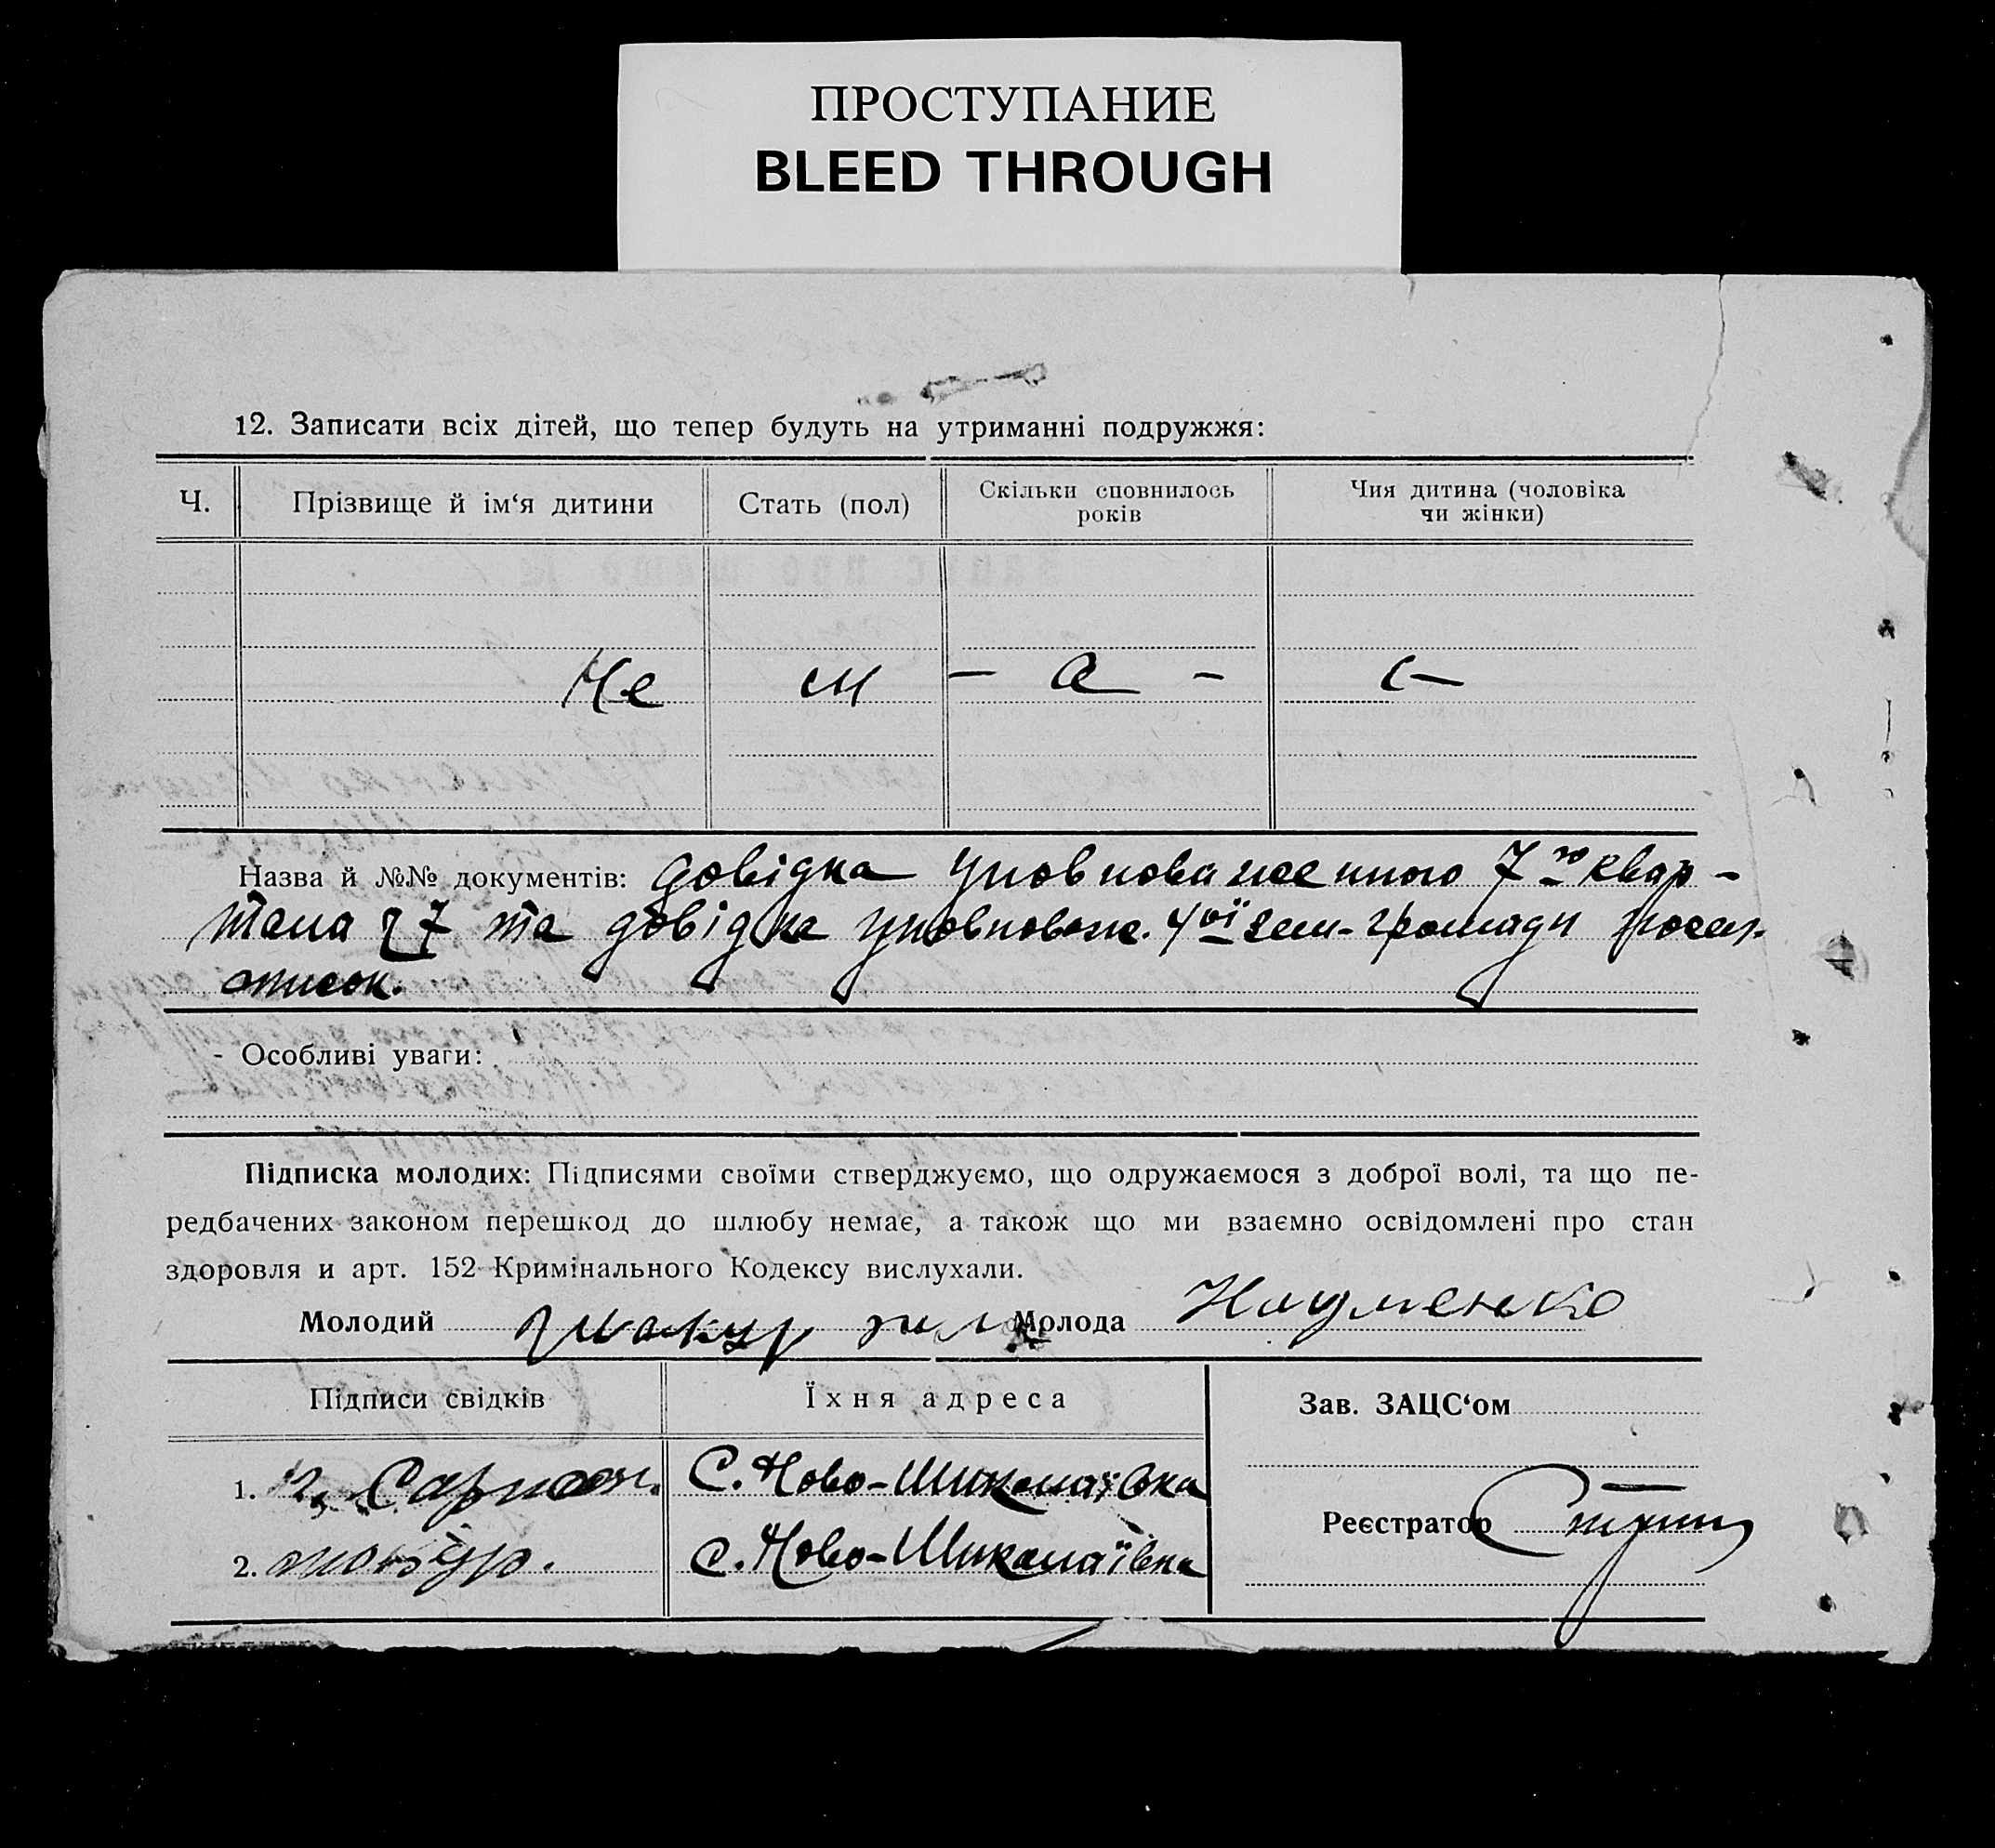 ПРОСТУПАНИЕ
BLEED THROUGH
12. Записати всіх дітей, що тепер будуть на утриманні подружжя:
Ч. Прізвище й ім‘я дитини Стать (пол) Скільки сповнилось років Чия дитина (чоловіка чи жінки)
Не м - а - є
Назва й №№ документів: довідка уповноваженного 7го квар-
тала 7 та довідка уповноваж. 4ої зем-громади
список.
- Особливі уваги:
Підписка молодих: Підписями своїми стверджуємо, що одружаємося з доброї волі, та що пе-
редбачених законом перешкод до шлюбу немає, а також що ми взаємно освідомлені про стан
здоровля и арт. 152 Кримінального Кодексу вислухали.
Молодий Молода Науменко
Підписи свідків Їхня адреса Зав. ЗАЦС‘ом
1. С. Ново-Миколаївка
Реєстратор
2. С. Ново-Миколаївка